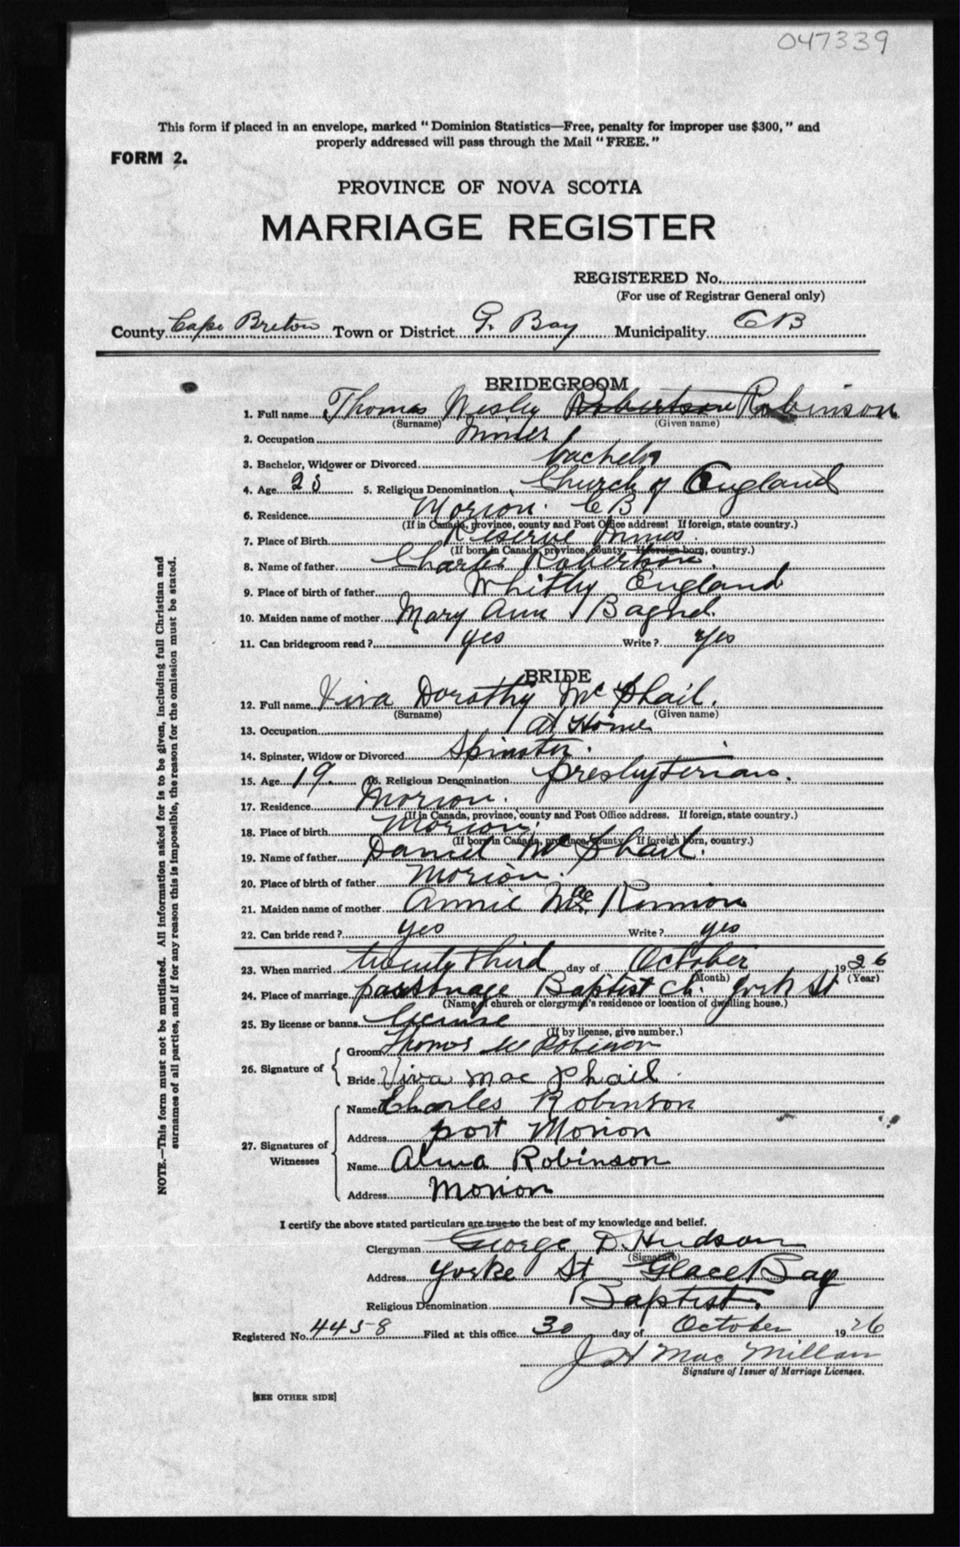 047339
This form if placed in an envelope, marked "Dominion Statistics—Free, penalty for improper use $300," and
properly addressed will pass through the Mail "FREE."
FORM 2.
PROVINCE OF NOVA SCOTIA
MARRIAGE REGISTER
REGISTERED No.
(For use of Registrar General only)
County Cape Breton Town or District G. Bay Municipality CB
BRIDEGROOM
1. Full name Thomas Wesley Robertson Robinson
(Surname) (Given name)
2. Occupation Miner
3. Bachelor, Widower or Divorced bachelor
4. Age 25 5. Religious Denomination Church of England
6. Residence Morion CB
(If in Canada, province, county and Post Office address! If foreign, state country.)
7. Place of Birth Reserve Mines
(If born in Canada, province, county, If foreign born, country.)
8. Name of father Charles Robertson
9. Place of birth of father Whitby England
10. Maiden name of mother Mary Ann
11. Can bridegroom read? yes Write? yes
BRIDE
12. Full name Viva Dorothy McPhail.
(Surname) (Given name)
13. Occupation At Home
14. Spinster, Widow or Divorced Spinster.
15. Age 19 16. Religious Denomination Presbyterian.
17. Residence Morion.
(If in Canada, province, county and Post Office address. If foreign, state country.)
18. Place of birth Morion.
(If born in Canada, province, county If foreign born, country.)
19. Name of father Daniel McPhail.
20. Place of birth of father Morion.
21. Maiden name of mother Annie Mac
22. Can bride read? yes Write? yes
23. When married twenty third day of October 1926
(Month) (Year)
24. Place of marriage parsonage Baptist Ch. York St
(Name of church or clergyman's residence or location of dwelling house.)
25. By license or banns license
(If by license, give number.)
26. Signature of
Groom Thomas W Robinson
Bride Viva MacPhail.
27. Signatures of Witnesses
Name Charles Robinson
Address port Morion
Name Alma Robinson
Address Morion
I certify the above stated particulars are true to the best of my knowledge and belief.
Clergyman George D. Hudson
(Signature)
Address Yorke St Glace Bay
Religious Denomination Baptist.
Registered No. 4458 Filed at this office 30 day of October 1926
J H MacMillan
Signature of Issuer of Marriage Licenses.
[SEE OTHER SIDE]
NOTE.—This form must not be mutilated. All information asked for is to be given, including full Christian and
surnames of all parties, and if for any reason this is impossible, the reason for the omission must be stated.